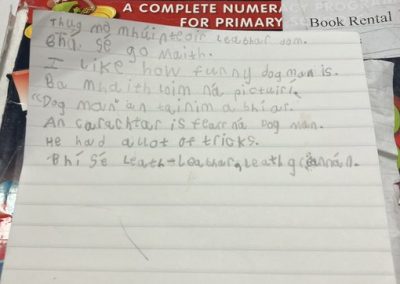 A COMPLETE NUMERACY PROGR
FOR PRIMARY S
Book Rental
Thug mo mhúinteoir leabhar dom.
Bhí sé go maith.
I like how funny dog man is.
Ba mhaith liom na pictuirí.
"Dog man" an tainim a bhí ar.
An carachtar is fearr ná Dog Man.
He had a lot of tricks.
Bhí sé leath-leabhar, leath